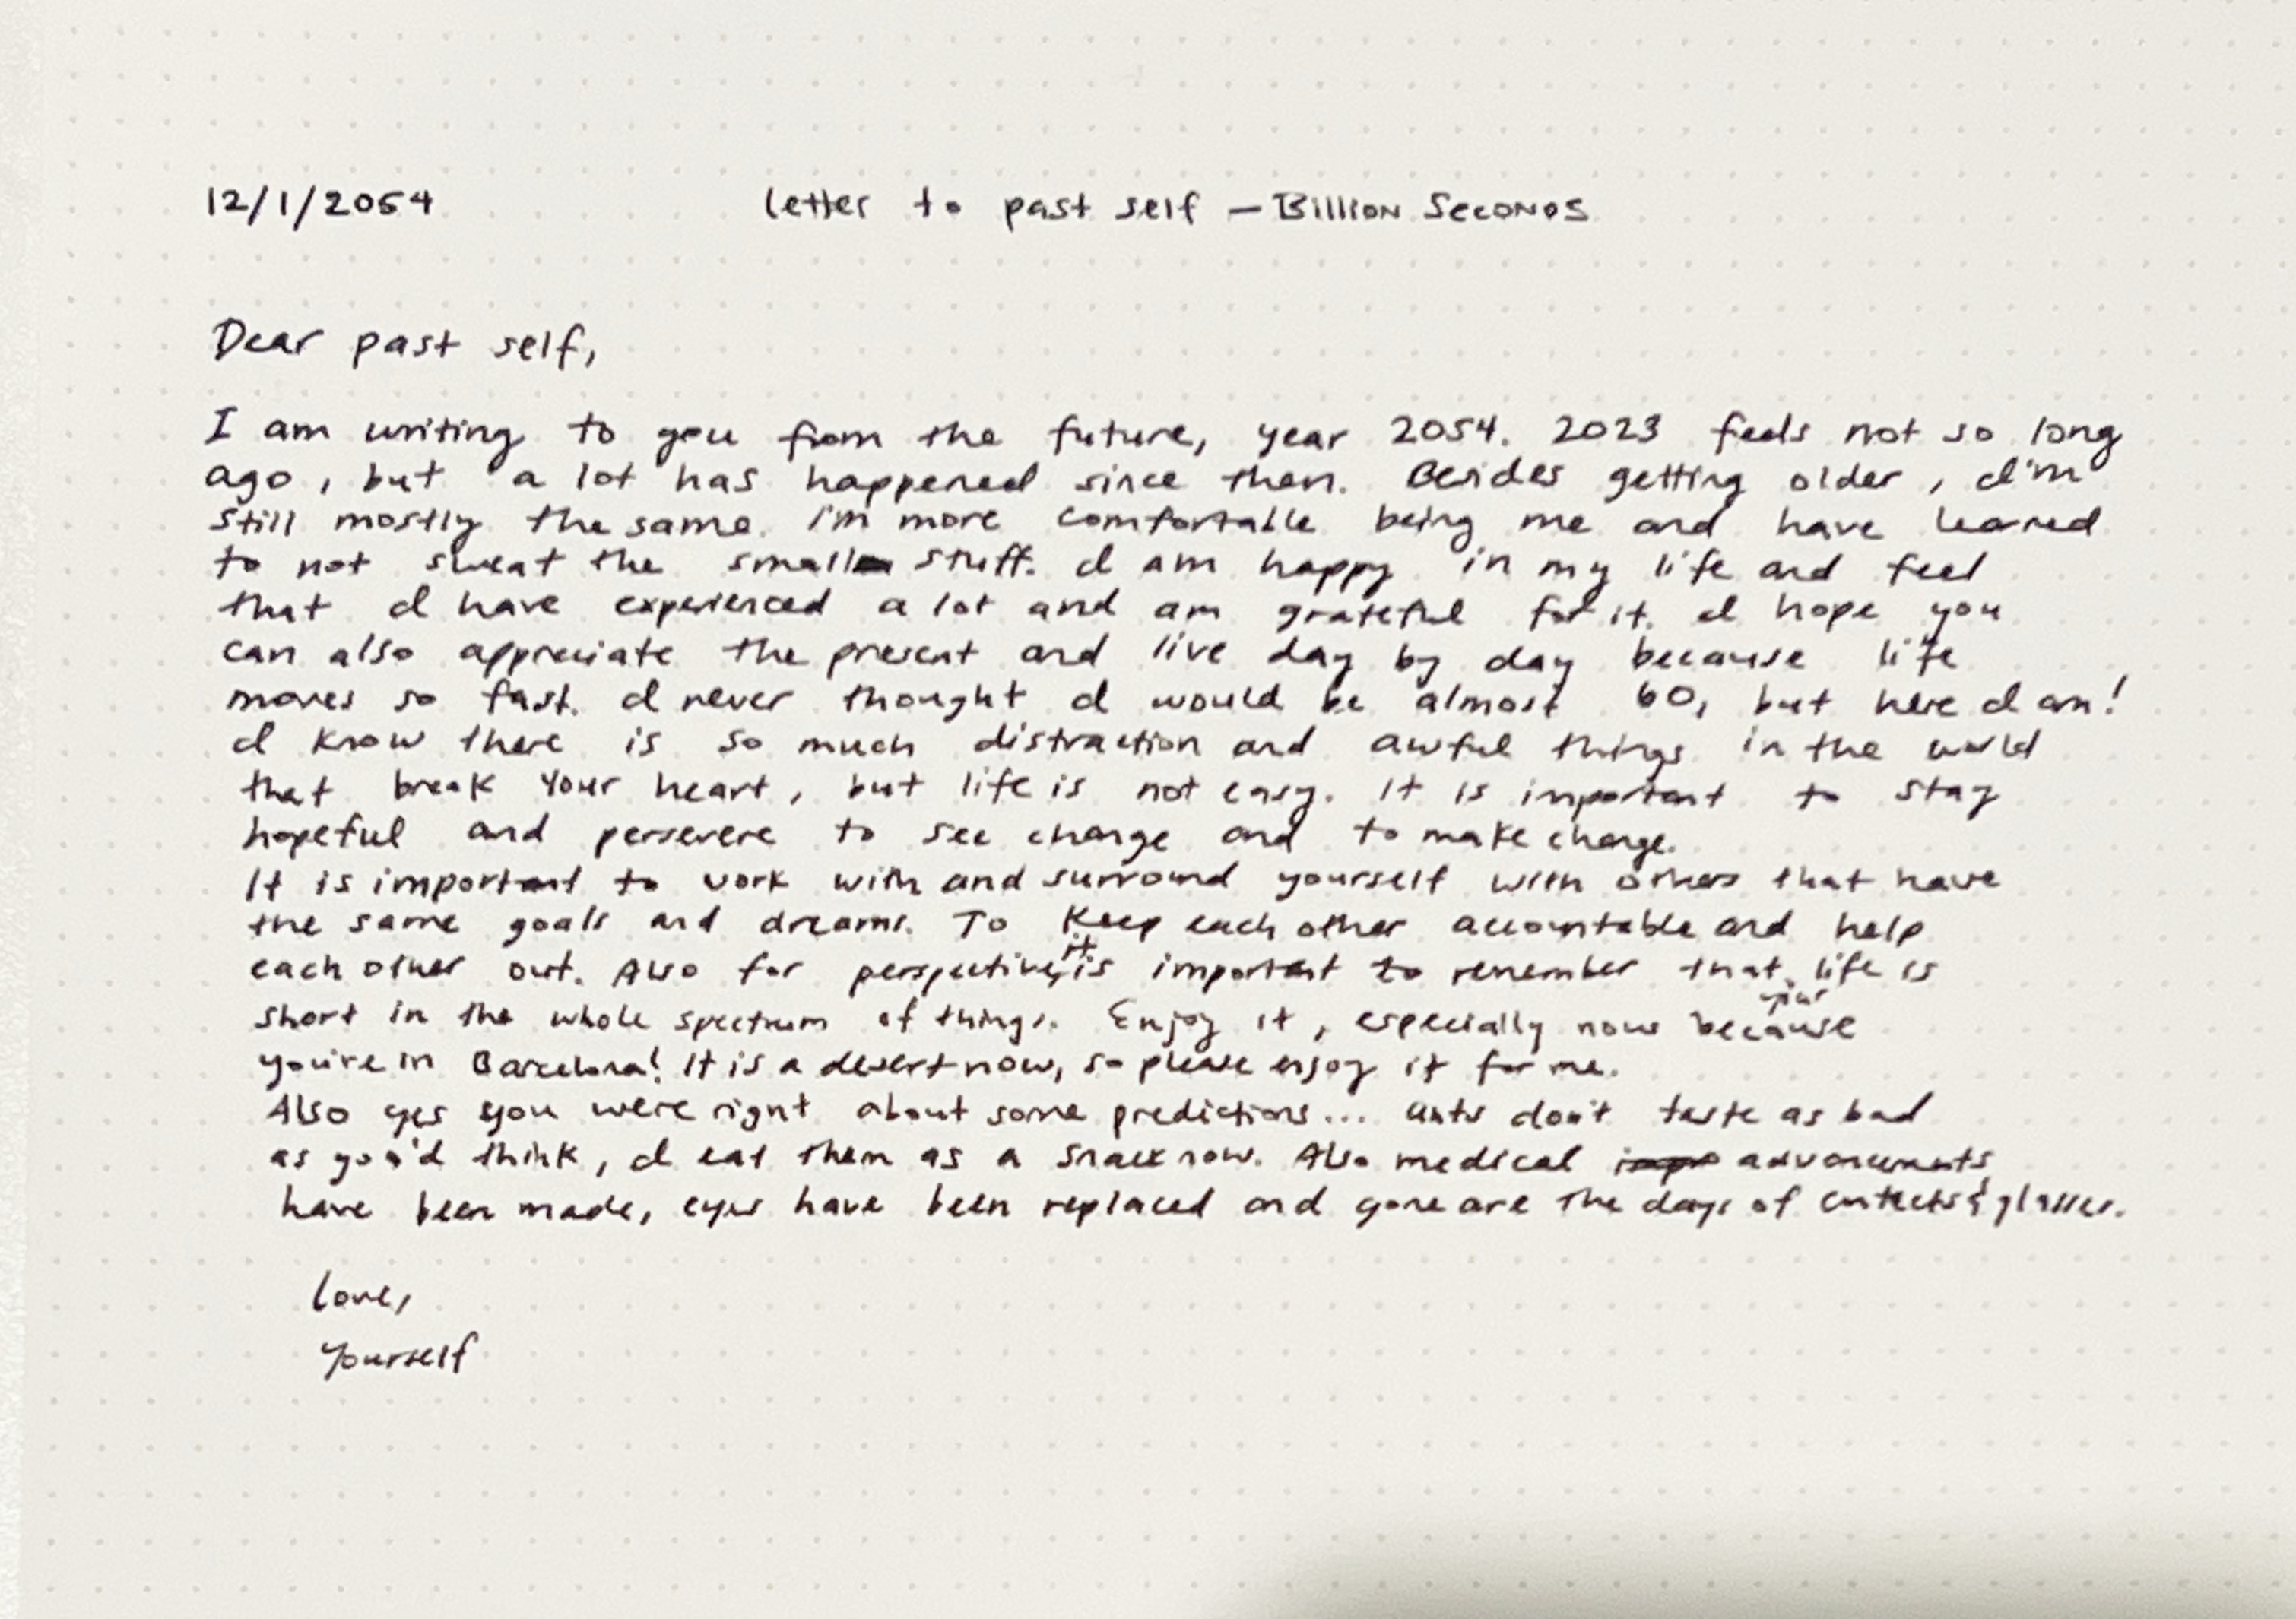 12/1/2054 letter to past self – Billion Seconds
Dear past self,
I am writing to you from the future, year 2054. 2023 feels not so long
ago, but a lot has happened since then. Besides getting older, I'm
still mostly the same. I'm more comfortable being me and have learned
to not sweat the small stuff. I am happy in my life and feel
that I have experienced a lot and am grateful for it. I hope you
can also appreciate the present and live day by day because life
moves so fast. I never thought I would be almost 60, but here I am!
I know there is so much distraction and awful things in the world
that break your heart, but life is not easy. It is important to stay
hopeful and persevere to see change and to make change.
It is important to work with and surround yourself with others that have
the same goals and dreams. To keep each other accountable and help
each other out. Also for perspective, it is important to remember that your life is
short in the whole spectrum of things. Enjoy it, especially now because
you're in Barcelona! It is a desert now, so please enjoy it for me.
Also yes you were right about some predictions... ants don't taste as bad
as you'd think, I eat them as a snack now. Also medical advancements
have been made, eyes have been replaced and gone are the days of contacts & glasses.
Love,
Yourself